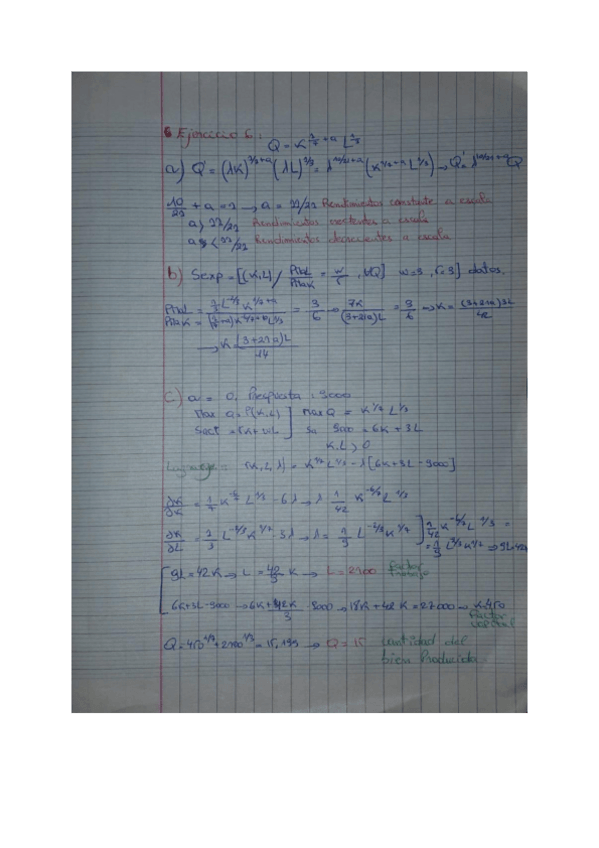 6 Ejercicio 6:
Q = K^{1/7 + a} L^{1/3}
a) Q' = (λK)^{1/7+a} (λL)^{1/3} = λ^{10/21+a} (K^{1/7+a} L^{1/3}) → Q' = λ^{10/21+a} Q
10/21 + a = 1 → a = 11/21 Rendimientos constante a escala
a > 11/21 Rendimientos crecientes a escala
a < 11/21 Rendimientos decrecientes a escala
b) Sexp = [(K,L) / PMaL/PMaK = w/r , ∀Q] w=3, r=6] datos.
PMaL/PMaK = = 3/6 → 7K/(3+21a)L = 3/6 → K = (3+21a)3L/42
→ K = (3+21a)L/14
c) a = 0, Presupuesto: 9000
Max Q = F(K,L) ] Max Q = K^{1/7} L^{1/3}
9000 = 6K + 3L
K, L > 0
Lagrange: (K, L, λ) = K^{1/7} L^{1/3} - λ[6K+3L-9000]
= 1/7 K^{-6/7} L^{1/3} - 6λ → λ 1/42 K^{-6/7} L^{1/3}
= 1/3 L^{-2/3} K^{1/7} - 3λ → λ = 1/9 L^{-2/3} K^{1/7} ] 1/42 K^{-6/7} L^{1/3} =
= 1/9 L^{-2/3} K^{1/7} ⇒ 9L=42K
[ 9L = 42K → L = 42/9 K → L = 2100 Factor trabajo
6K+3L-9000 → 6K + 42K/3 9000 → 18K + 42K = 27000 → K=450
Factor capital
Q = 450^{1/7} + 2100^{1/3} = 15,199 → Q = 15 cantidad del
bien Producida.